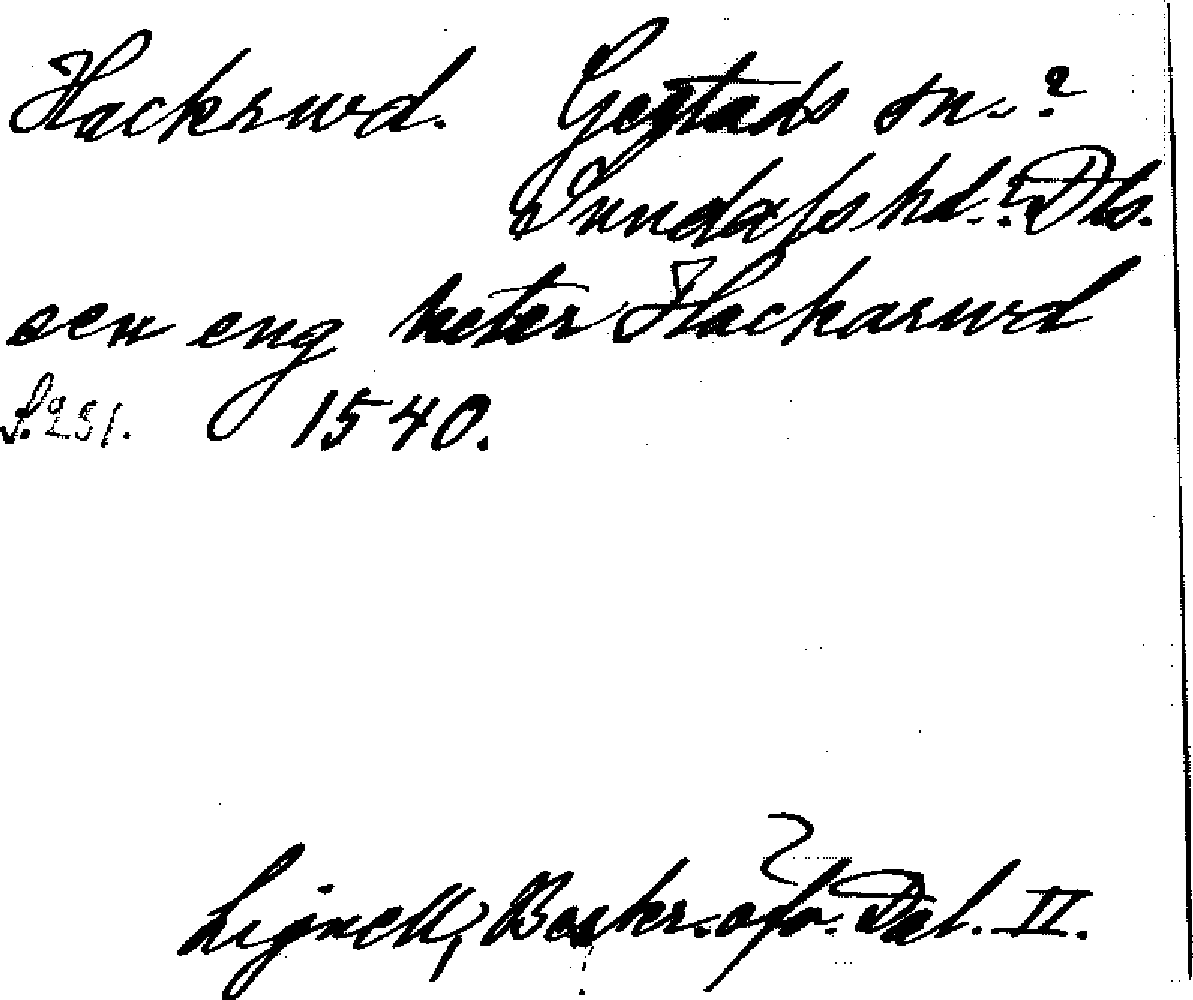 Hackrwd. Gestads sn.?
Sundals hd.? Dls.
sen eng heter Hackarwd
S. 251. 1540.
Lignell, Beskr. öfv. Dal. II.